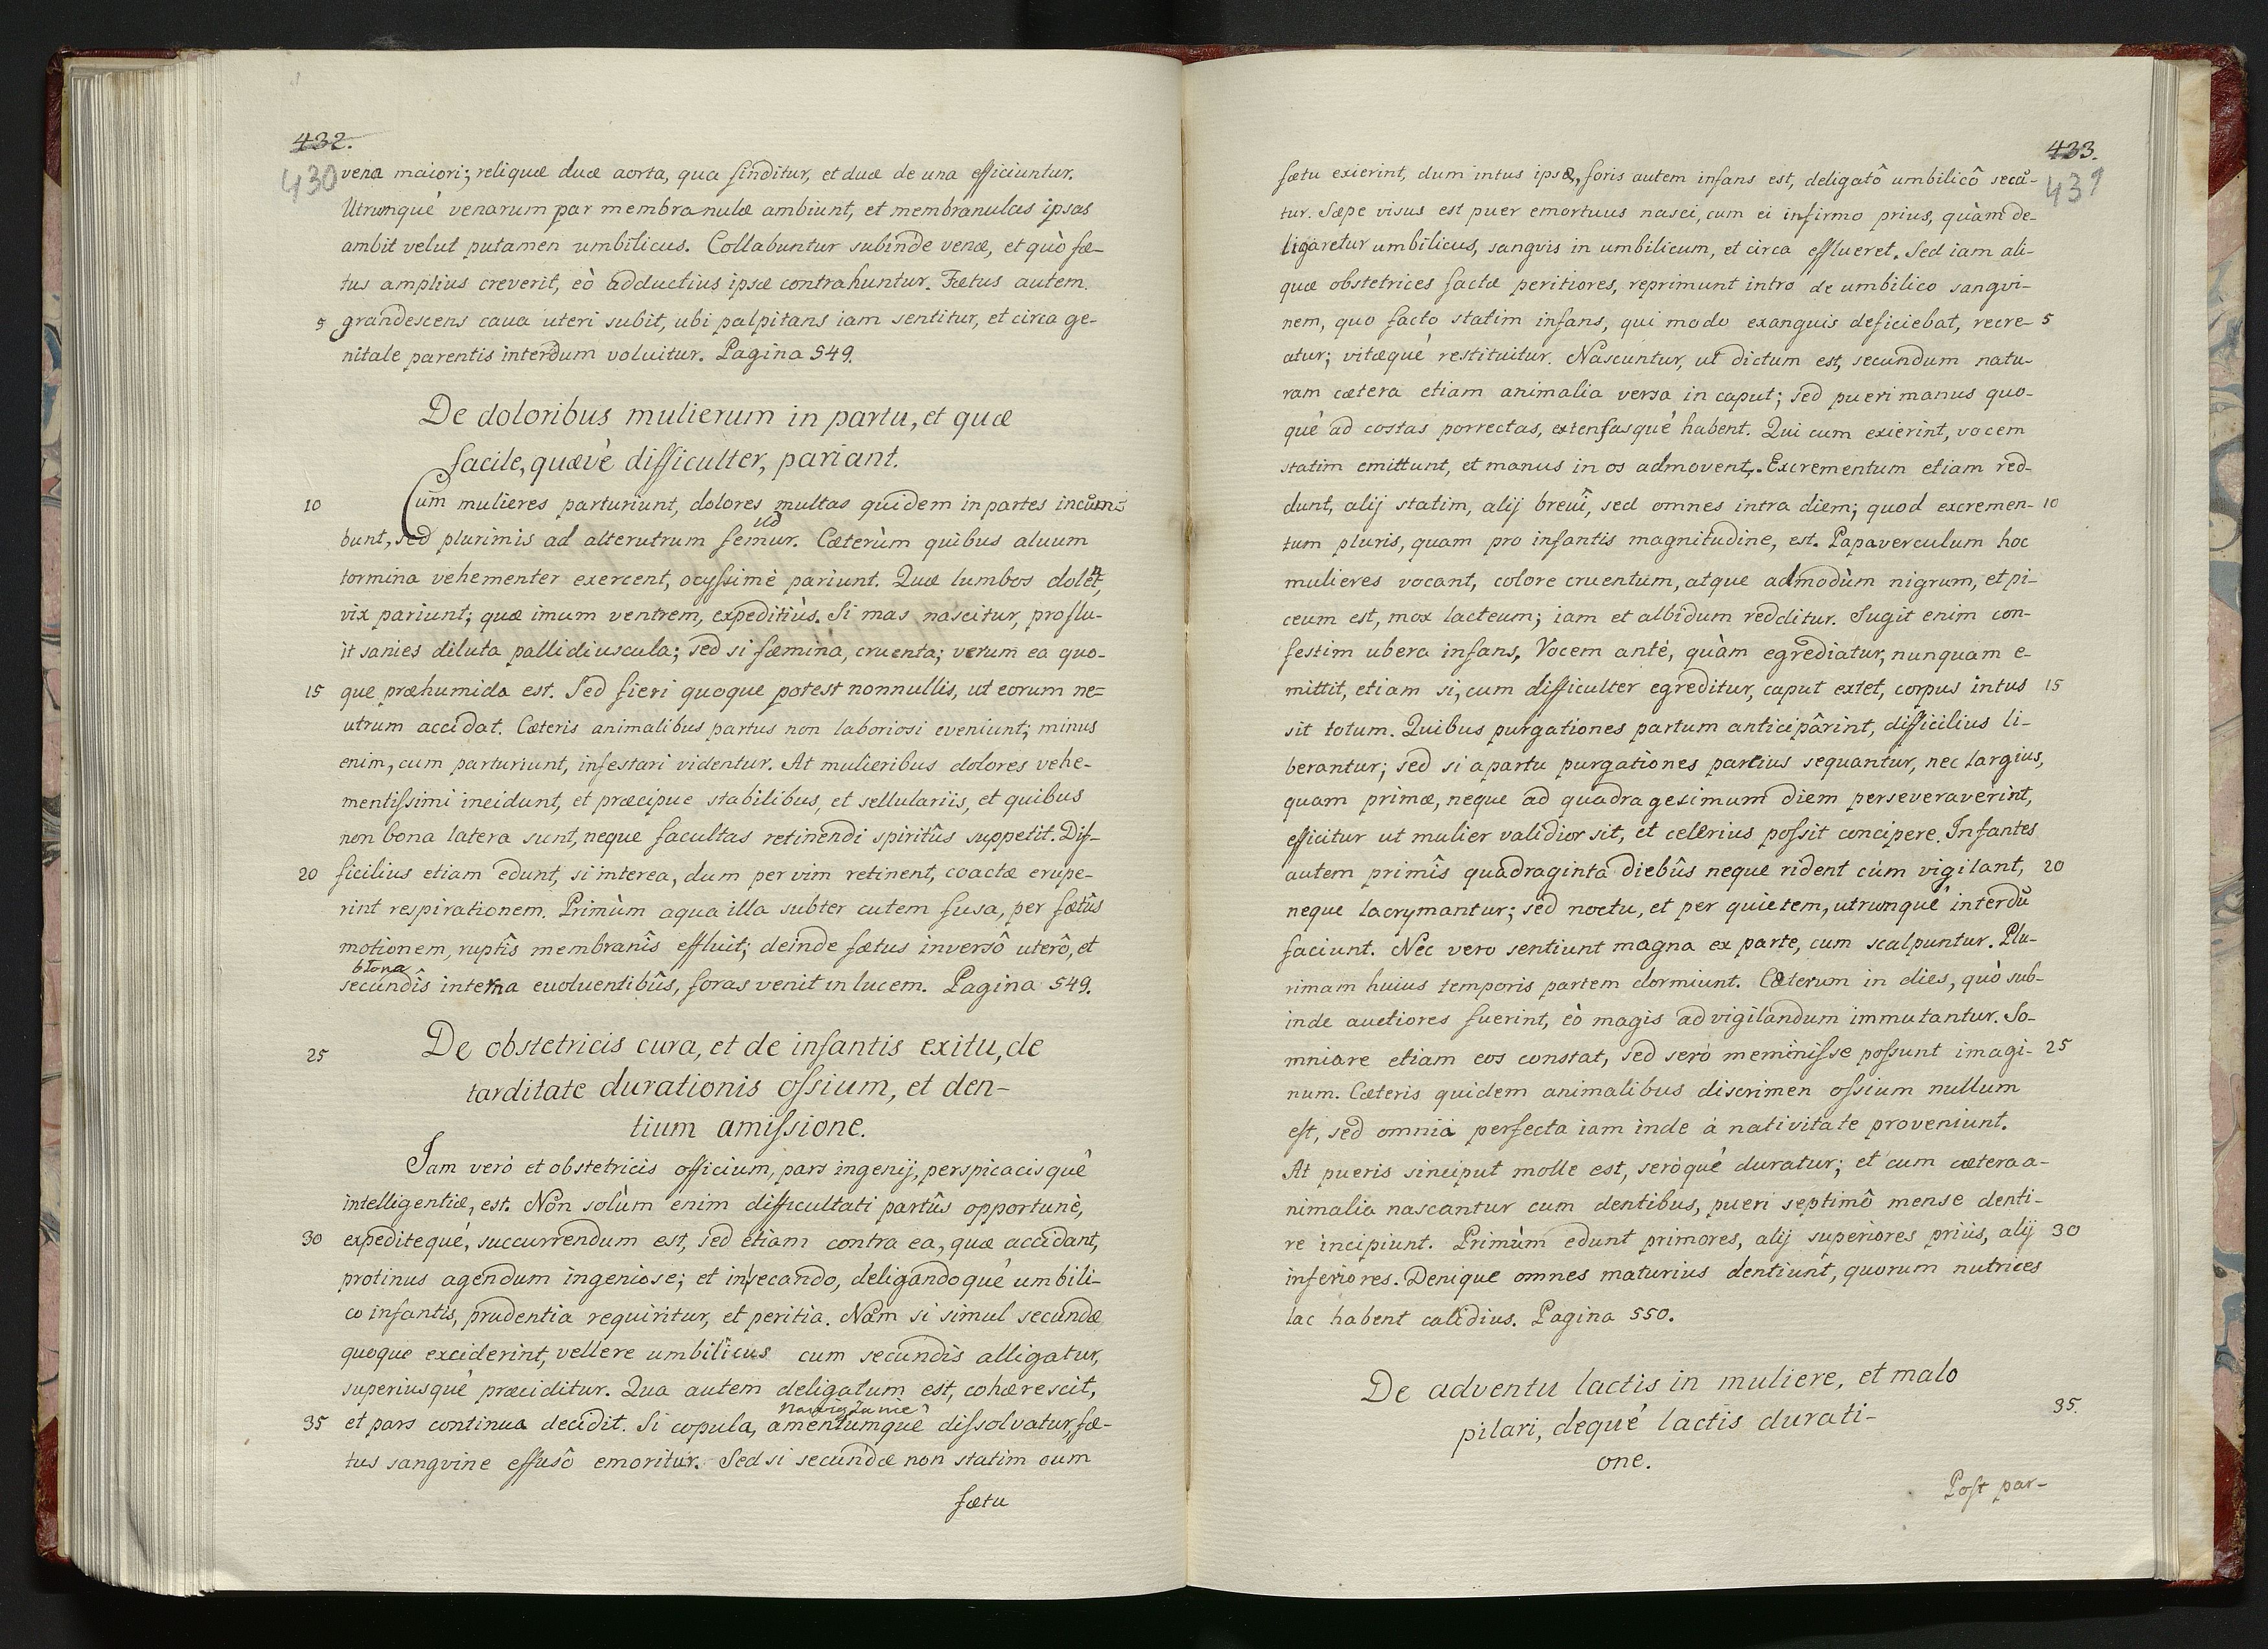 432.
430
vena maiori; reliquæ duæ aorta, qua finditur, et duæ de una efficiuntur.
Utrunqué venarum par membranulæ ambiunt, et membranulas ipsas
ambit velut putamen umbilicus. Collabuntur subinde venæ, et quò fæ-
tus amplius creverit, eò adductius ipsæ contrahuntur. Fætus autem
5 grandescens caua uteri subit, ubi palpitans iam sentitur, et circa ge-
nitale parentis interdum voluitur. Pagina 549.
De doloribus mulierum in partu, et quæ
facile, quævè difficulter, pariant.
10 Cum mulieres parturiunt, dolores multas quidem in partes incum-
bunt, sed plurimis ad alterutrum femur. Cæterùm quibus aluum
udo
tormina vehementer exercent, ocyssimè pariunt. Quæ lumbos dolent,
vix pariunt; quæ imum ventrem, expeditiùs. Si mas nascitur, proflu-
it sanies diluta pallidiuscula; sed si fæmina, cruenta; verum ea quo-
15 que præhumida est. Sed fieri quoque potest nonnullis, ut eorum ne=
utrum accidat. Cæteris animalibus partus non laboriosi eveniunt; minus
enim, cum parturiunt, infestari videntur. At mulieribus dolores vehe-
mentissimi incidunt, et præcipue stabilibus, et sellulariis, et quibus
non bona latera sunt, neque facultas retinendi spiritûs suppetit. Dif-
20 ficilius etiam edunt, si interea, dum per vim retinent, coactæ erupe-
rint respirationem. Primùm aqua illa subter cutem fusa, per fætûs
motionem, ruptîs membranîs effluit; deinde fætus inversô uterô, et
błona
secundîs interna euoluentibûs, foras venit in lucem. Pagina 549.
25 De obstetricis cura, et de infantis exitu, de
tarditate durationis ossium, et den-
tium amissione.
Iam verò et obstetricis officium, pars ingenij, perspicacisquê
intelligentiæ, est. Non solùm enim difficultati partûs opportunè,
30 expeditequé, succurrendum est, sed etiam contra ea, quæ accidant,
protinus agendum ingeniose; et in secando, deligandoqué umbili-
co infantis, prudentia requiritur, et peritia. Nam si simul secundæ
quoque exciderint, vellere umbilicus cum secundis alligatur,
superiusqué præciditur. Qua autem deligatum est, cohærescit,
nawiązanie
35 et pars continua decidit. Si copula, amentumquê dissolvatur, fæ-
tus sangvine effusô emoritur. Sed si secundæ non statim cum
fætu
433.
431
fætu exierint, dum intus ipsæ, foris autem infans est, deligatô umbilicô seca-
tur. Sæpe visus est puer emortuus nasci, cum ei infirmo prius, quàm de-
ligaretur umbilicus, sangvis in umbilicum, et circa efflueret. Sed iam ali-
quæ obstetrices factæ peritiores, reprimunt intro de umbilico sangvi-
nem, quo facto statim infans, qui modo exanguis deficiebat, recre- 5
atur; vitæqué restituitur. Nascuntur, ut dictum est, secundum natu-
ram cætera etiam animalia versa in caput; sed pueri manus quo-
què ad costas porrectas, extensasqué habent. Qui cum exierint, vocem
statim emittunt, et manus in os admovent. Excrementum etiam red-
dunt, alij statim, alij brevî, sed omnes intra diem; quod excremen- 10
tum pluris, quam pro infantis magnitudine, est. Papaverculum hoc
mulieres vocant, colore cruentum, atque admodùm nigrum, et pi-
ceum est, mox lacteum; iam et albidum redditur. Sugit enim con-
festim ubera infans. Vocem antè, quàm egrediatur, nunquam e-
mittit, etiam si, cum difficulter egreditur, caput extet, corpus intus 15
sit totum. Quibus purgationes partum anticipârint, difficilius li-
berantur; sed si a partu purgationes parcius sequantur, nec largius,
quam primæ, neque ad quadragesimum diem perseveraverint,
efficitur ut mulier validior sit, et celerius possit concipere. Infantes
autem primîs quadraginta diebûs neque rident cùm vigilant, 20
neque lacrymantur; sed noctu, et per quietem, utrunquê interdũ
faciunt. Nec vero sentiunt magna ex parte, cum scalpuntur. Plu-
rimam huius temporis partem dormiunt. Cæterum in dies, quò sub-
inde auctiores fuerint, eò magis ad vigilandum immutantur. So-
mniare etiam eos constat, sed serò meminisse possunt imagi- 25
num. Cæteris quidem animalibus discrimen ossium nullum
est, sed omnia perfecta iam inde à nativitate proveniunt.
At pueris sinciput molle est, seròqué duratur; et cum cætera a-
nimalia nascantur cum dentibus, pueri septimô mense denti-
re incipiunt. Primùm edunt primores, alij superiores priùs, alij 30
inferiores. Denique omnes maturius dentiunt, quorum nutrices
lac habent calidius. Pagina 550.
De adventu lactis in muliere, et malo
35. pilari, dequé lactis durati-
one.
Post par-